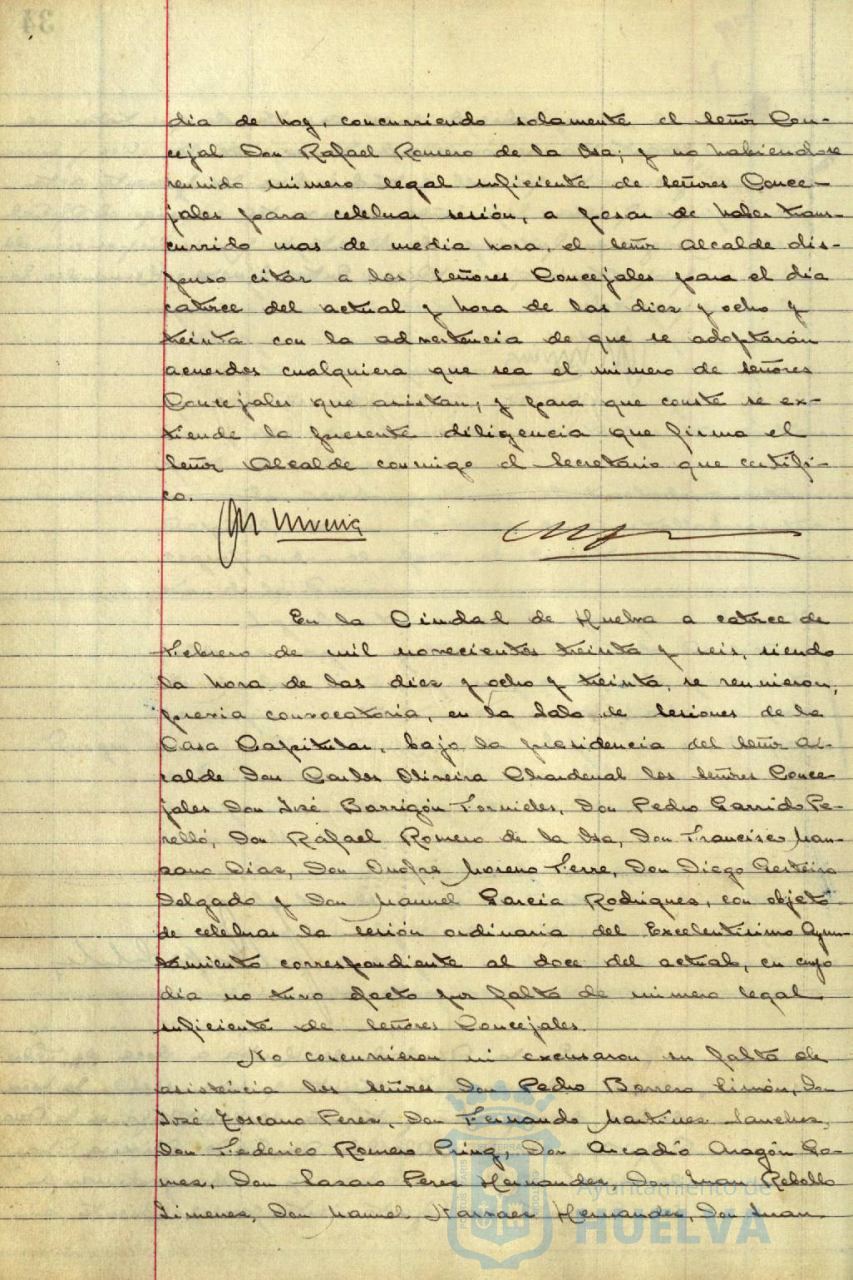 dia de hoy, concurriendo solamente el Señor Con-
cejal Don Rafael Romero de la Osa; y no habiendose
reunido número legal suficiente de Señores Conce-
jales para celebrar sesión, a pesar de haber trans-
currido mas de media hora, el Señor Alcalde dis-
puso citar a los Señores Concejales para el día
catorce del actual y hora de las diez y ocho y
treinta con la advertencia de que se adoptarán
acuerdos cualquiera que sea el número de Señores
Concejales que asistan; y para que conste se ex-
tiende la presente diligencia que firma el
Señor Alcalde conmigo el Secretario que certifi-
co.
En la Ciudad de Huelva a catorce de
Febrero de mil novecientos treinta y seis, siendo
la hora de las diez y ocho y treinta, se reunieron,
previa convocatoria, en la Sala de Sesiones de la
Casa Capitular, bajo la presidencia del Señor Al-
calde Don Carlos Oliveira Chardenal los Señores Conce-
jales Don José Barrigón Fornieles, Don Pedro Garrido Pe-
relló, Don Rafael Romero de la Osa, Don Francisco Man-
zano Diaz, Don Onofre Moreno Ferre, Don Diego
Delgado y Don Manuel Garcia Rodriguez, con objeto
de celebrar la sesión ordinaria del Excelentísimo Ayun-
tamiento correspondiente al doce del actual, en cuyo
dia no tuvo efecto por falta de número legal
suficiente de Señores Concejales.
No concurrieron ni excusaron su falta de
asistencia los Señores Don Pedro Borrero Limón, Don
José Toscano Perez, Don Fernando Martinez Sanchez,
Don Federico Romero Pring, Don Arcadio Aragón Go-
mez, Don Lazaro Perez Hernandez, Don Juan Rebollo
Jimenez, Don Manuel Narvaez Hernandez, Don Juan
Ayuntamiento de
HUELVA
34